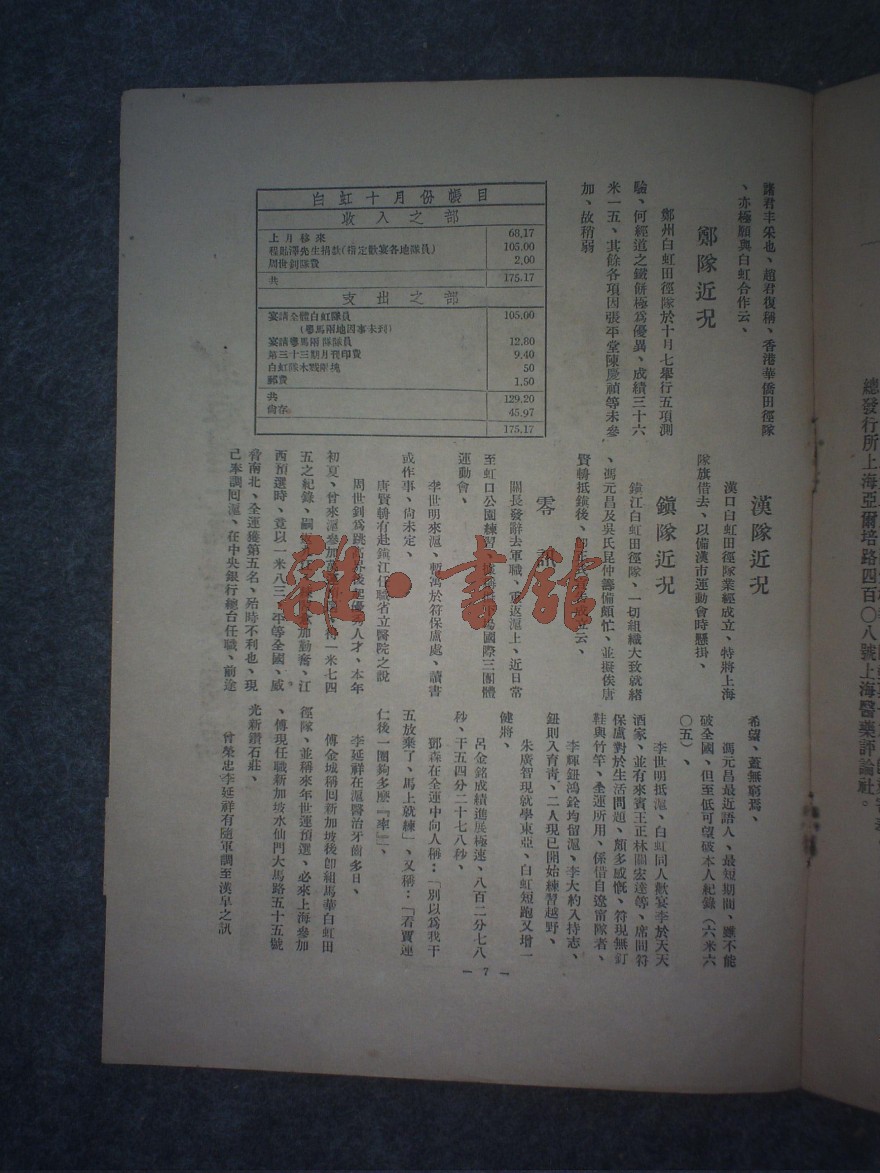 諸君丰采也、趙君復稱、香港華僑田徑隊
、亦極願與白虹合作云、
鄭隊近況
鄭州白虹田徑隊於十月七舉行五項測
驗、何經道之鐵餅極爲優異、成績三十六
米一五、其餘各項因張平堂陳慶禎等未參
加、故稍弱
白虹十月份帳目
收入之部
上月移來 68.17
程貽澤先生捐款(指定歡宴各地隊員) 105.00
周世釗隊費 2.00
共 175.17
支出之部
宴請全體白虹隊員 105.00
(鄂馬兩地因事未到)
宴請鄂馬兩隊隊員 12.80
第三十三期月刊印費 9.40
白虹隊木戳 50
郵費 1.50
共 129.20
尙存 45.97
175.17
漢隊近況
漢口白虹田徑隊業經成立、特將上海
隊旗借去、以備漢市運動會時懸掛、
鎭隊近況
鎭江白虹田徑隊、一切組織大致就緒
、馮元昌及吳氏昆仲籌備頗忙、並擬俟唐
賢輈抵鎭後、卽正式宣告成立云、
零訊
關長發辭去軍職、重返滬上、近日常
至虹口公園練習
國際三團體
運動會、
李世明來滬、暫寓於符保盧處、讀書
或作事、尙未定、
唐賢輈有赴鎭江任職省立醫院之說
周世釗爲跳高界後起優秀人才、本年
初夏、曾來滬參加
得一米七四
五之紀錄、嗣
加勤奮、江
西預選時、竟以一米八三
平等全國、威
脅南北、全運獲第五名、殆時不利也、現
已奉調囘滬、在中央銀行總台任職、前途
希望、蓋無窮焉、
馮元昌最近語人、最短期間、雖不能
破全國、但至低可望破本人紀錄(六米六
〇五)、
李世明抵滬、白虹同人歡宴李於天天
酒家、並有來賓王正林關宏達等、席間符
保盧對於生活問題、頗多感慨、符現無釘
鞋與竹竿、全運所用、係借自遼甯隊者、
李輝鈕鴻銓均留滬、李大約入持志、
鈕則入育靑、二人現已開始練習越野、
朱廣智現就學東亞、白虹短跑又增一
健將、
呂金銘成績進展極速、八百二分七八
秒、千五四分二十七八秒、
鄧森在全運中向人稱:「別以爲我千
五放棄了、馬上就練」、又稱:「看賈連
仁後一圈夠多麽『率』」、
李延祥在滬醫治牙齒多日、
傅金城稱囘新加坡後卽組馬華白虹田
徑隊、並稱來年世運預選、必來上海參加
、傅現任職新加坡水仙門大馬路五十五號
光新鑽石莊、
曾榮忠李延祥有隨軍調至漢皋之訊
— 7 —
總發行所上海亞爾培路四百〇八號上海醫藥評論社。
雜·書館